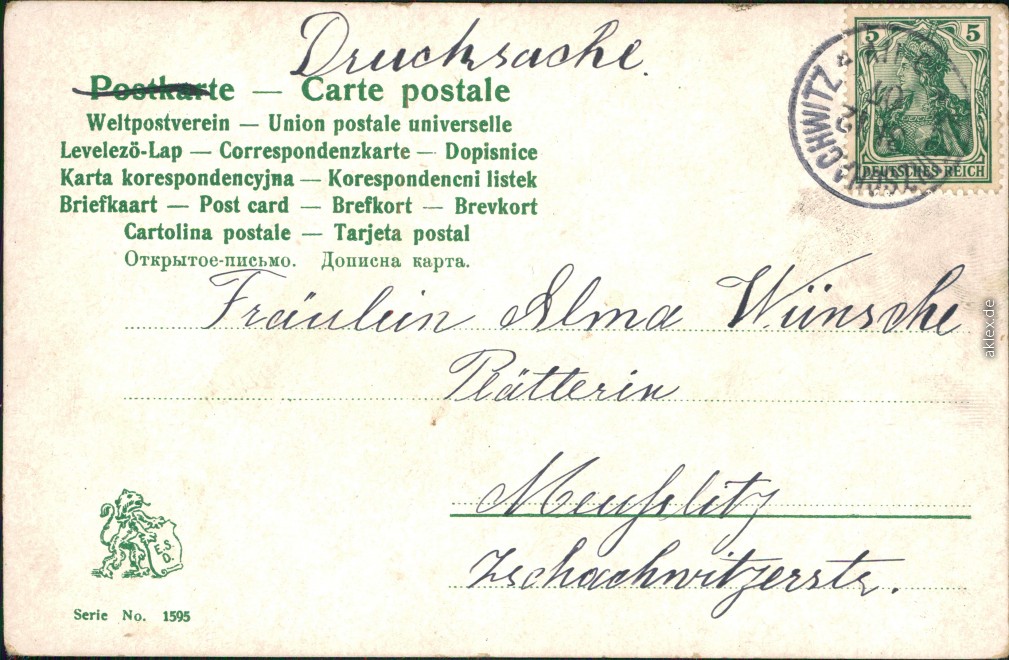 Drucksache.
Postkarte — Carte postale
Weltpostverein — Union postale universelle
Levelező-Lap — Correspondenzkarte — Dopisnice
Karta korespondencyjna — Korespondencni listek
Briefkaart — Post card — Brefkort — Brevkort
Cartolina postale — Tarjeta postal
Открытое-письмо. Дописна карта.
5 5
DEUTSCHES REICH
Fräulein Alma Wünsche
Plätterin
Meußlitz
Zschachwitzerstr.
E.S.
D.
Serie No. 1595
aklex.de